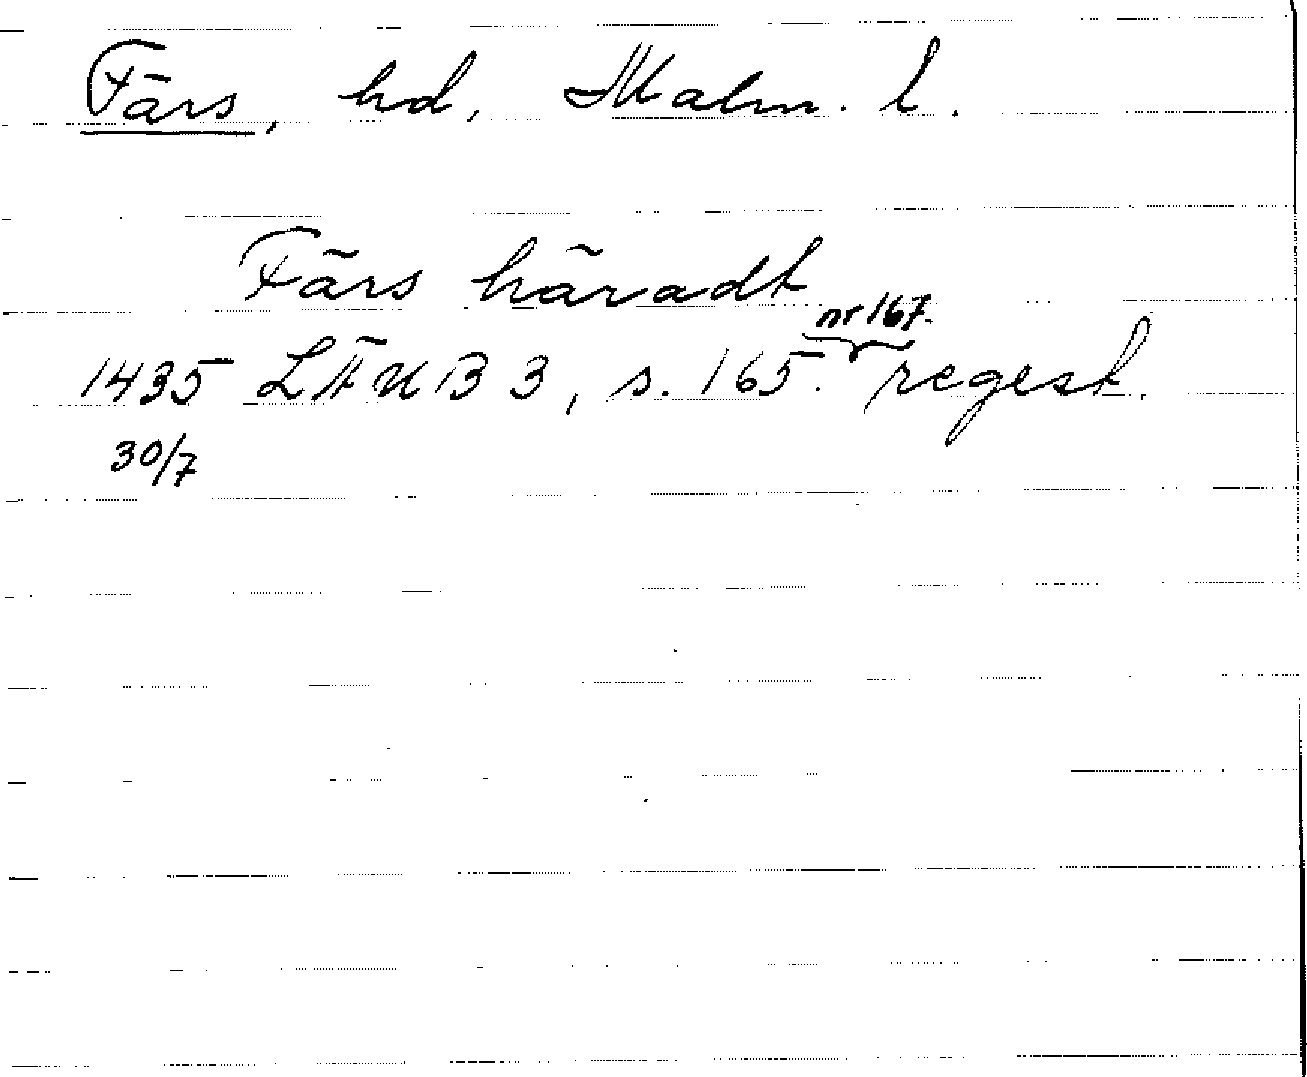 Färs, hd, Malm. l.
Färs häradt
nr 167.
1435 LÄUB 3, s. 165. regest.
30/7